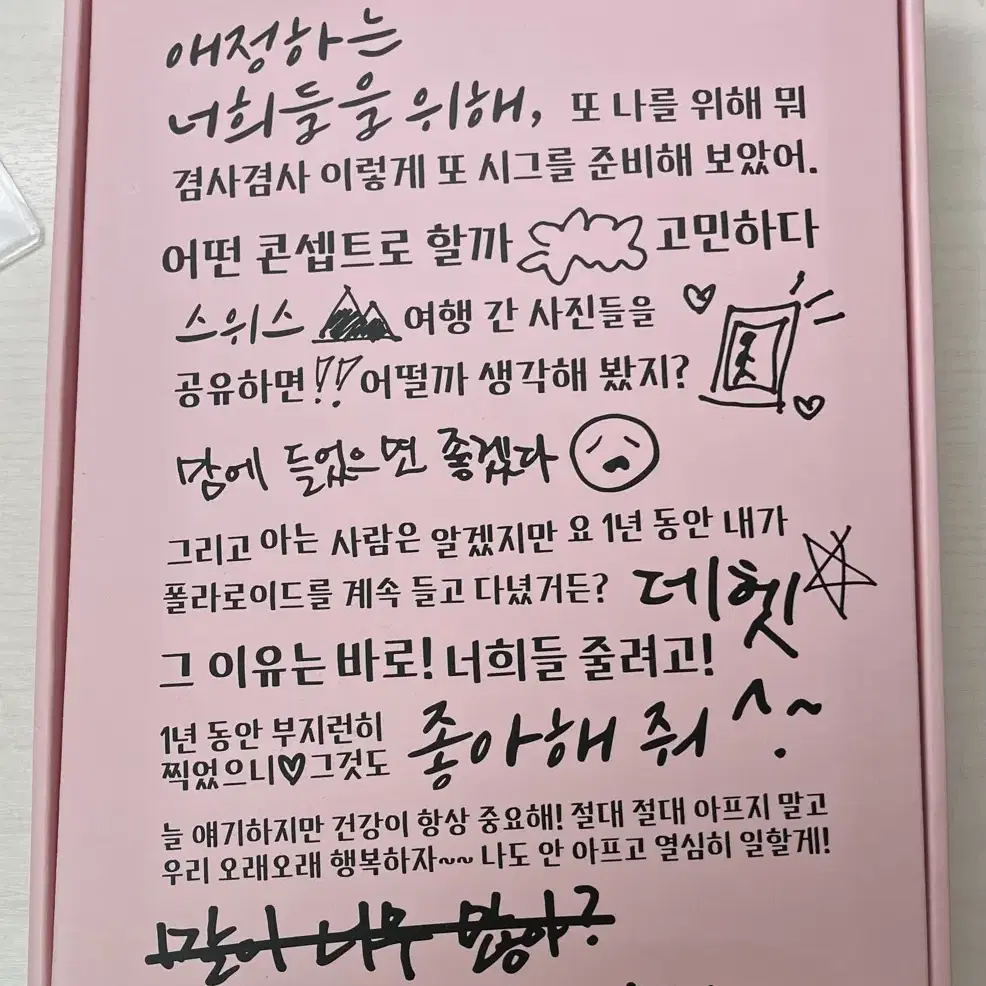 애정하는
너희들을 위해, 또 나를 위해 뭐
겸사겸사 이렇게 또 시그를 준비해 보았어.
어떤 콘셉트로 할까 고민하다
스위스 여행 간 사진들을
공유하면!! 어떨까 생각해 봤지?
맘에 들었으면 좋겠다
그리고 아는 사람은 알겠지만 요 1년 동안 내가
폴라로이드를 계속 들고 다녔거든? 데헷
그 이유는 바로! 너희들 줄려고!
1년 동안 부지런히
찍었으니♡그것도 좋아해 줘 ^.~
늘 얘기하지만 건강이 항상 중요해! 절대 절대 아프지 말고
우리 오래오래 행복하자~~ 나도 안 아프고 열심히 일할게!
말이 너무 많아?